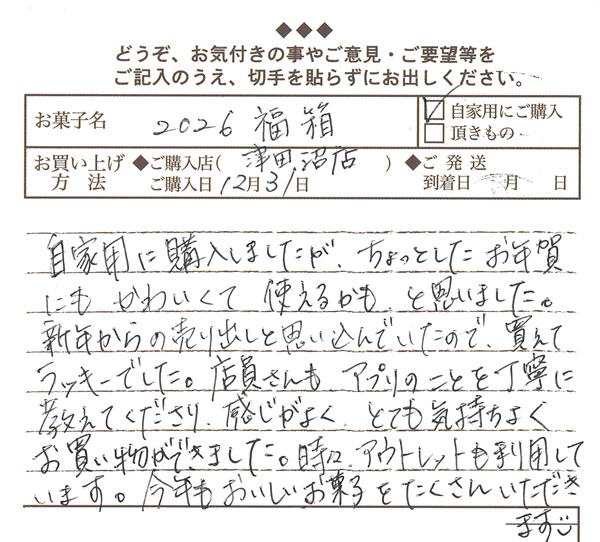 ◆◆◆
どうぞ、お気付きの事やご意見・ご要望等を
ご記入のうえ、切手を貼らずにお出しください。
お菓子名 2026 福箱 自家用にご購入
頂きもの
お買い上げ方法 ◆ご購入店( 津田沼店 ) ◆ご発送
ご購入日 12月31日 到着日 月 日
自家用に購入しましたが、ちょっとしたお年賀
にも かわいくて 使えるかも と思いました。
新年からの売り出しと思い込んでいたので、買えて
ラッキーでした。店員さんも、アプリのことを丁寧に
教えてくださり、感じがよく とても気持ちよく
お買い物ができました。時に、アウトレットも利用して
います。今年もおいしいお菓子をたくさんいただき
ます